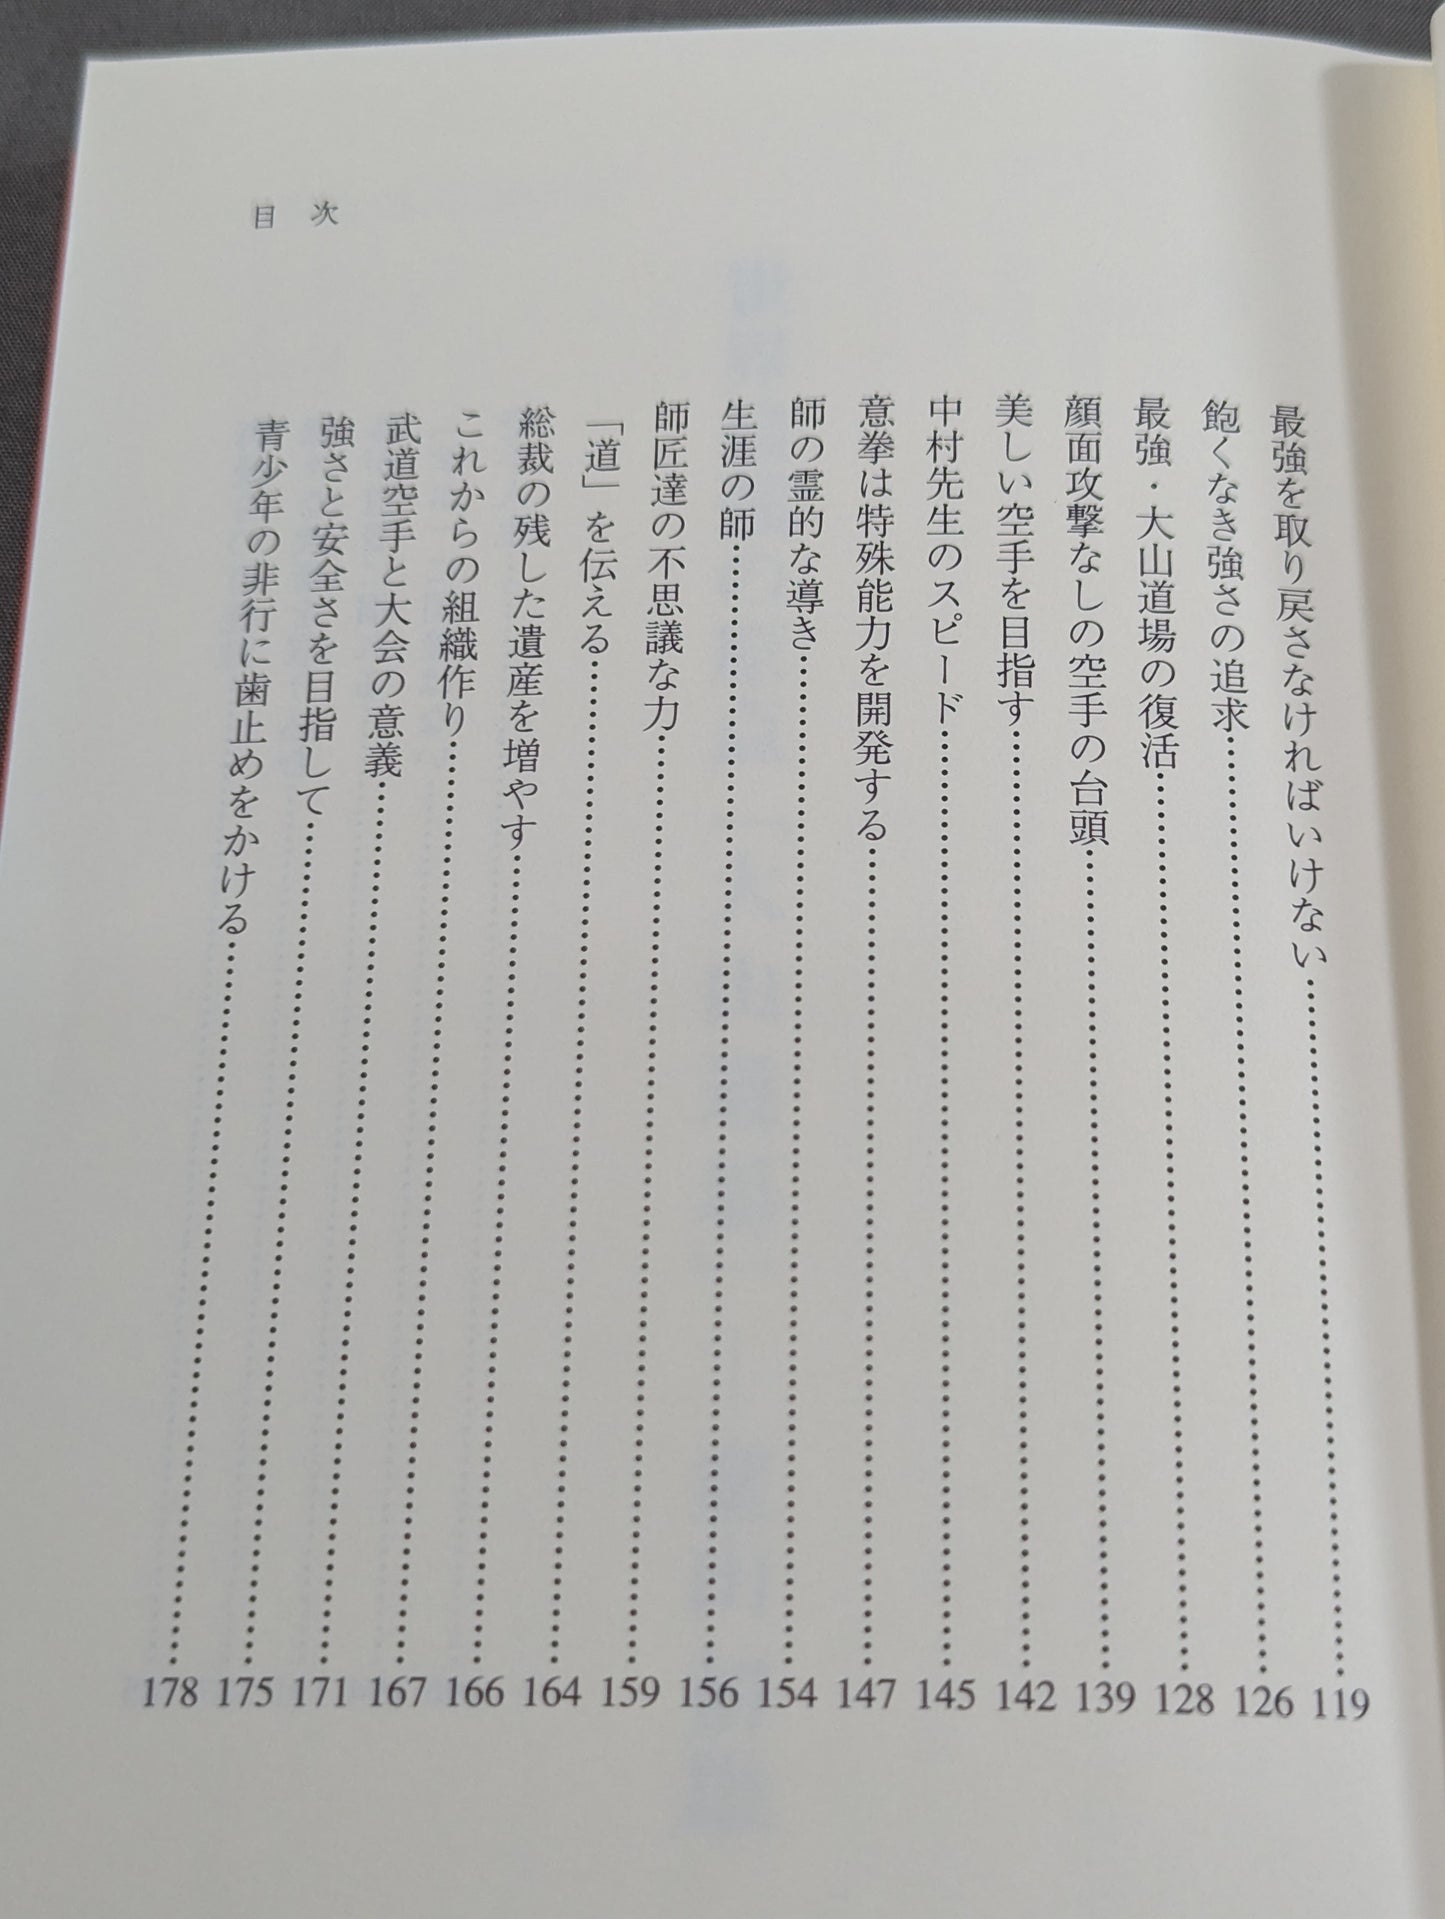 目次
最強を取り戻さなければいけない……119
飽くなき強さの追求……126
最強・大山道場の復活……128
顔面攻撃なしの空手の台頭……139
美しい空手を目指す……142
中村先生のスピード……145
意拳は特殊能力を開発する……147
師の霊的な導き……154
生涯の師……156
師匠達の不思議な力……159
「道」を伝える……164
総裁の残した遺産を増やす……166
これからの組織作り……167
武道空手と大会の意義……171
強さと安全さを目指して……175
青少年の非行に歯止めをかける……178